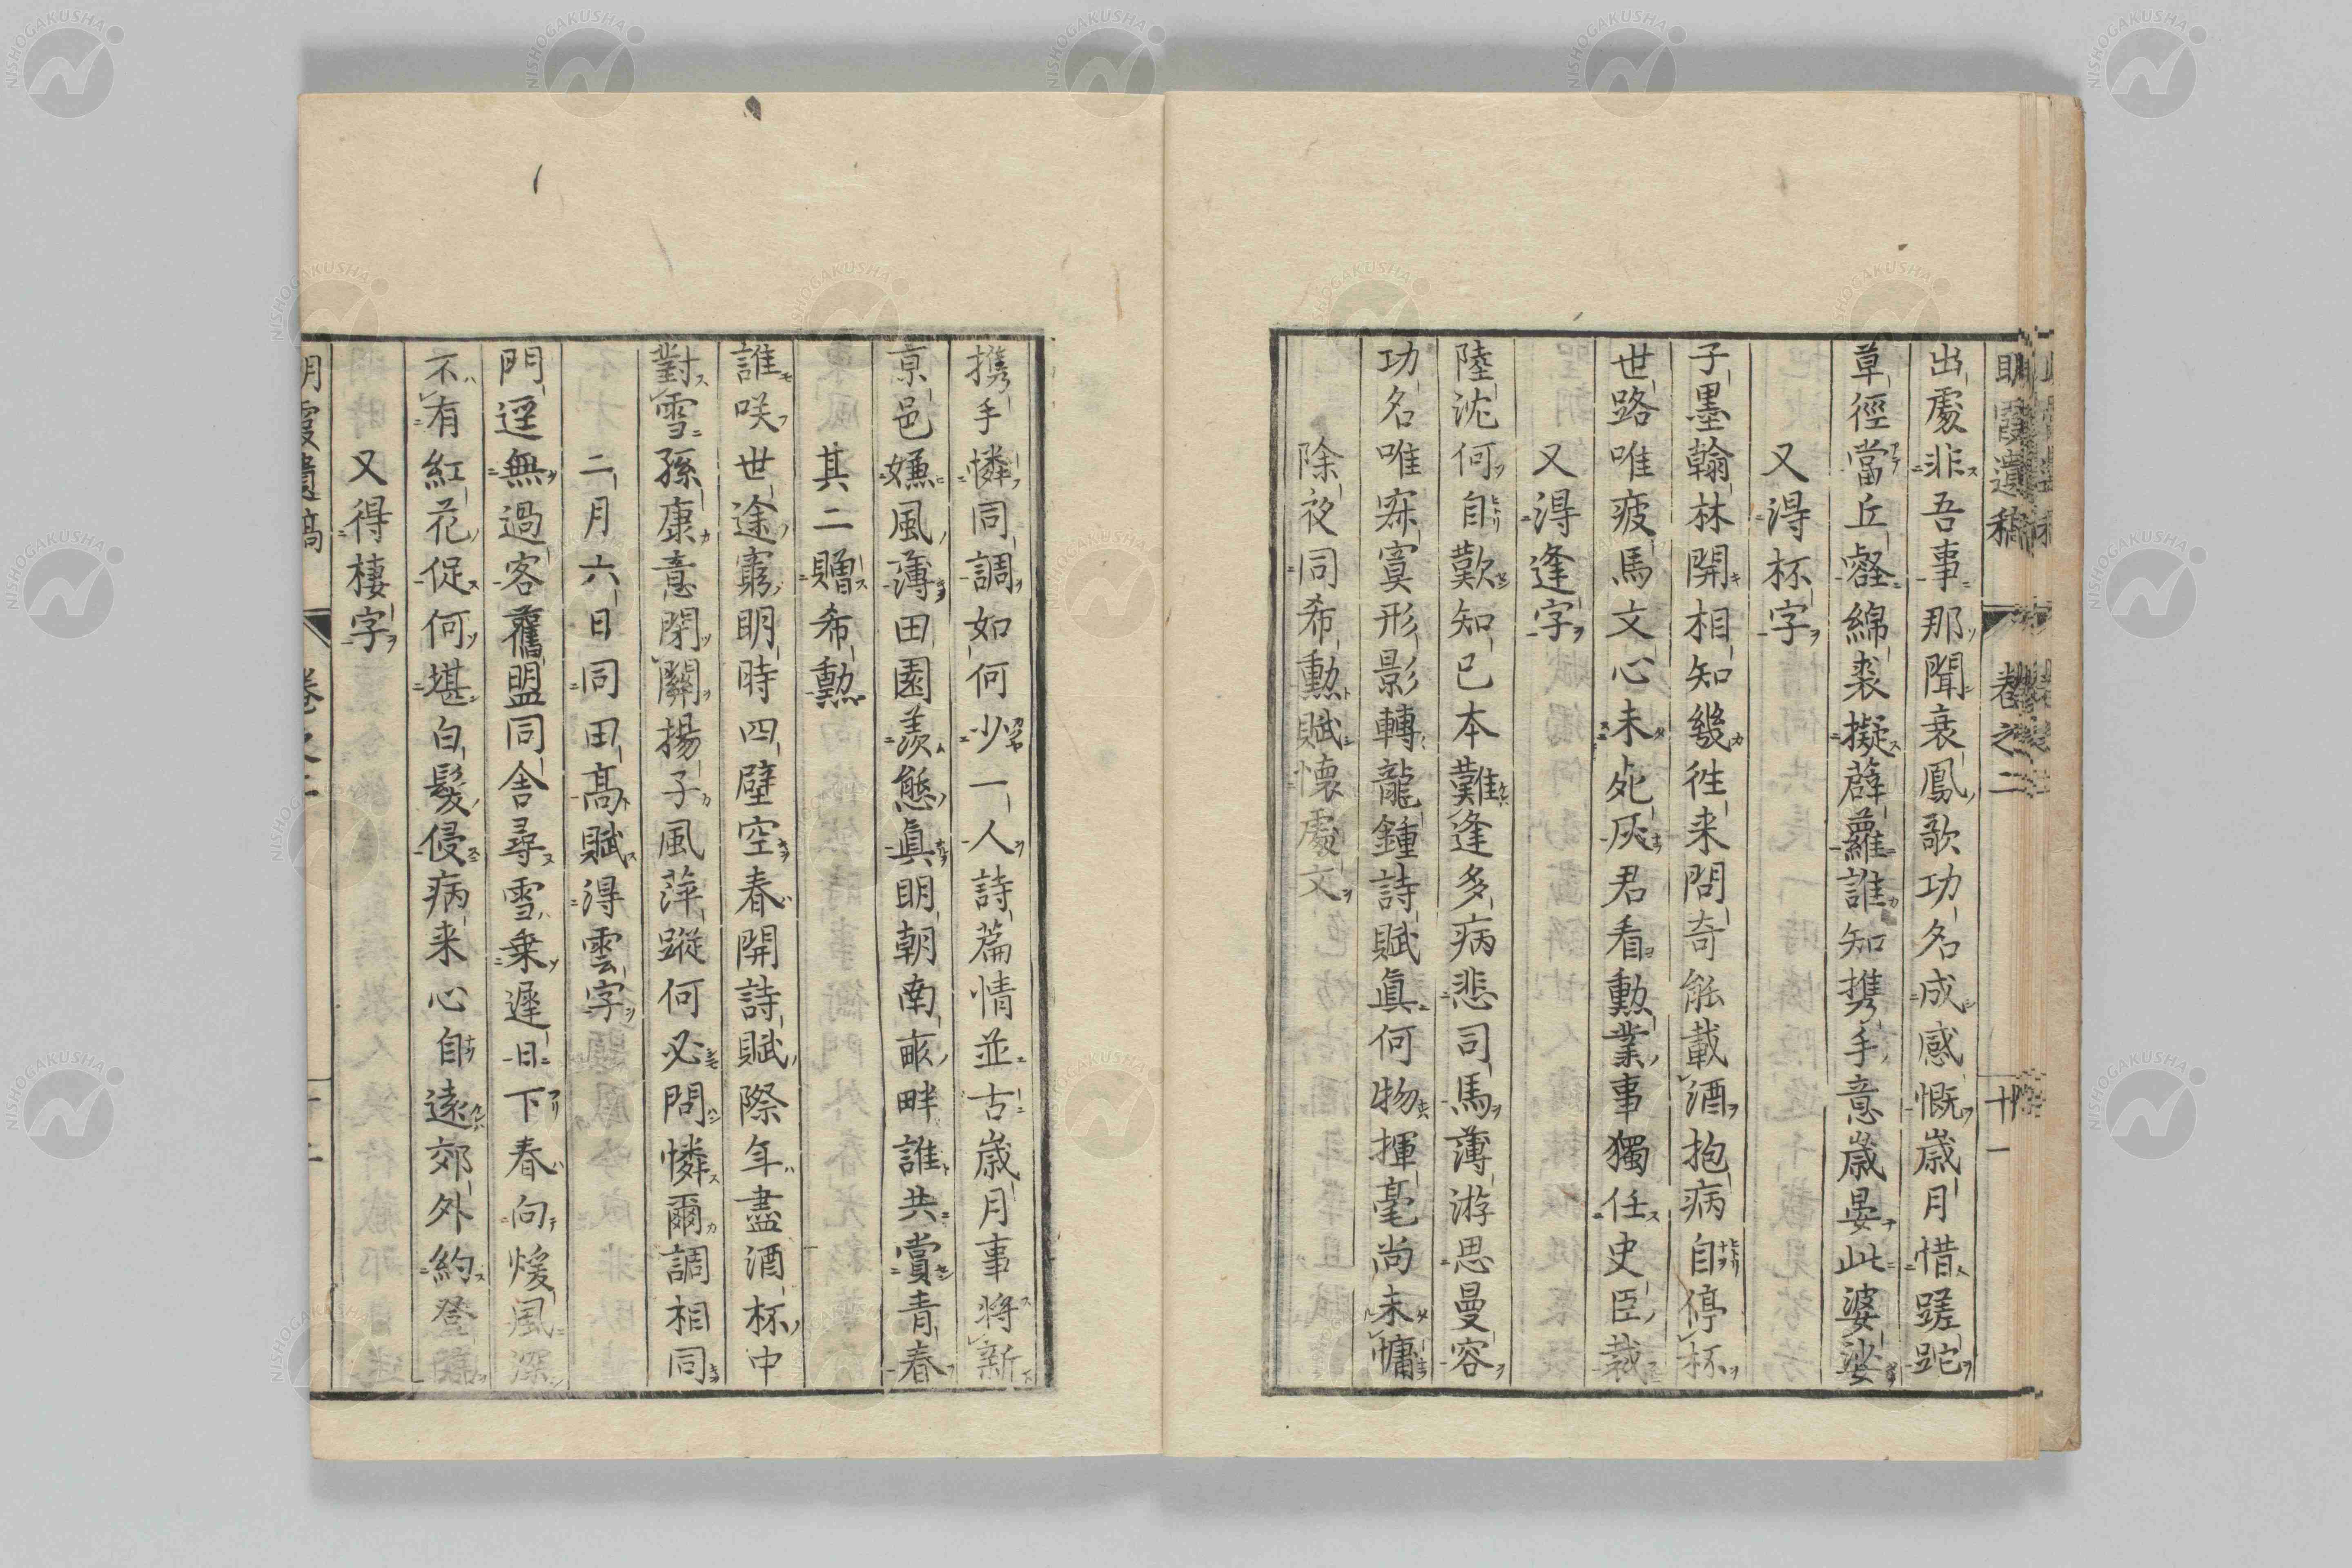 明霞遺稿 卷之二 十一
出處非吾事那聞衰鳳歌功名成感慨歳月惜蹉跎
草徑當丘壑綿裘擬薜蘿誰知携手意歳晏此婆娑
又得杯字
子墨翰林開相知幾徃来問奇能載酒抱病自停杯
世路唯疲馬文心未死灰君看勲業事獨任史臣裁
又得逢字
陸沈何自歎知已本難逢多病悲司馬薄游思曼容
功名唯寂寞形影轉龍鍾詩賦眞何物揮毫尚未慵
除夜同希勲賦懐處文
携手憐同調如何少一人詩篇情並古歳月事將新
京邑嫌風薄田園羨態眞明朝南畝畔誰共賞青春
其二贈希勲
誰咲世途窮明時四壁空春開詩賦際年盡酒杯中
對雪孫康意閉關揚子風萍蹤何必問憐爾調相同
二月六日同田高賦得雲字
門逕無過客舊盟同舍尋雪乗遲日下春向煖風深
不有紅花促何堪白髮侵病来心自遠郊外約登臨
又得棲字
NISHOGAKUSHA